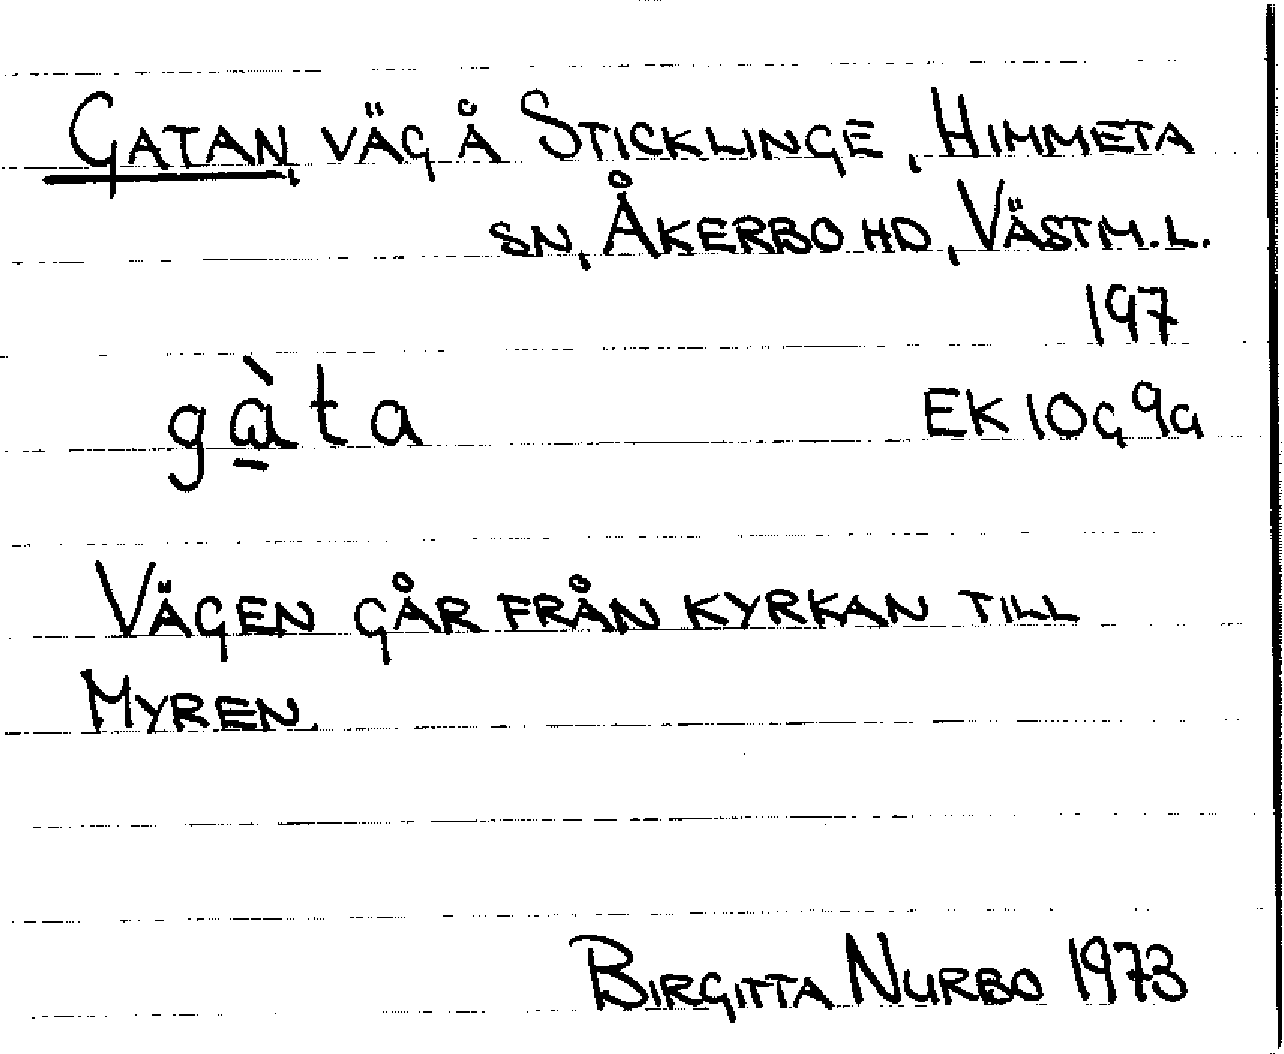 GATAN, VÄG Å STICKLINGE, HIMMETA
SN, ÅKERBO HD, VÄSTM.L.
197
gàta
EK 10G 9a
VÄGEN GÅR FRÅN KYRKAN TILL
MYREN.
BIRGITTA NURBO 1973